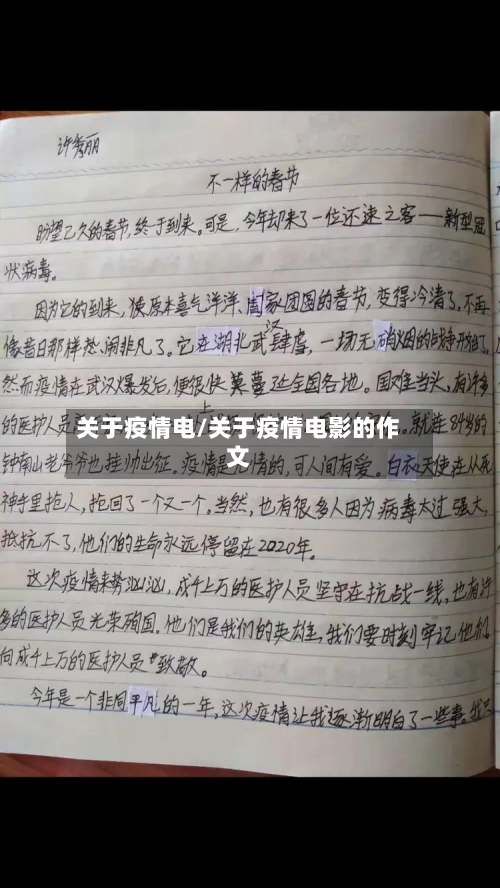 许秀丽
不一样的春节
盼望已久的春节,终于到来。可是,今年却来了一位不速之客——新型冠
状病毒。
因为它的到来,使原本喜气洋洋、阖家团圆的春节,变得冷清了,不再
像昔日那样热闹非凡了。它在湖北武汉肆虐,一场无硝烟的战争开始了。
然而疫情在武汉爆发后,便很快蔓延全国各地。国难当头,有许多
的医护人员
上
就连84岁的
关于疫情电/关于疫情电影的作
文
钟南山老爷爷也挂帅出征。疫情是无情的,可人间有爱。白衣天使在从死
神手里抢人,抢回了一个又一个。当然,也有很多人因为病毒太过强大,
抵抗不了,他们的生命永远停留在2020年。
这次疫情来势汹汹,成千上万的医护人员坚守在抗战一线,也有许
多的医护人员光荣殉国。他们是我们的英雄,我们要时刻牢记他们,
向成千上万的医护人员"致敬。
今年是一个非同平凡的一年,这次疫情让我逐渐明白了一些事。我